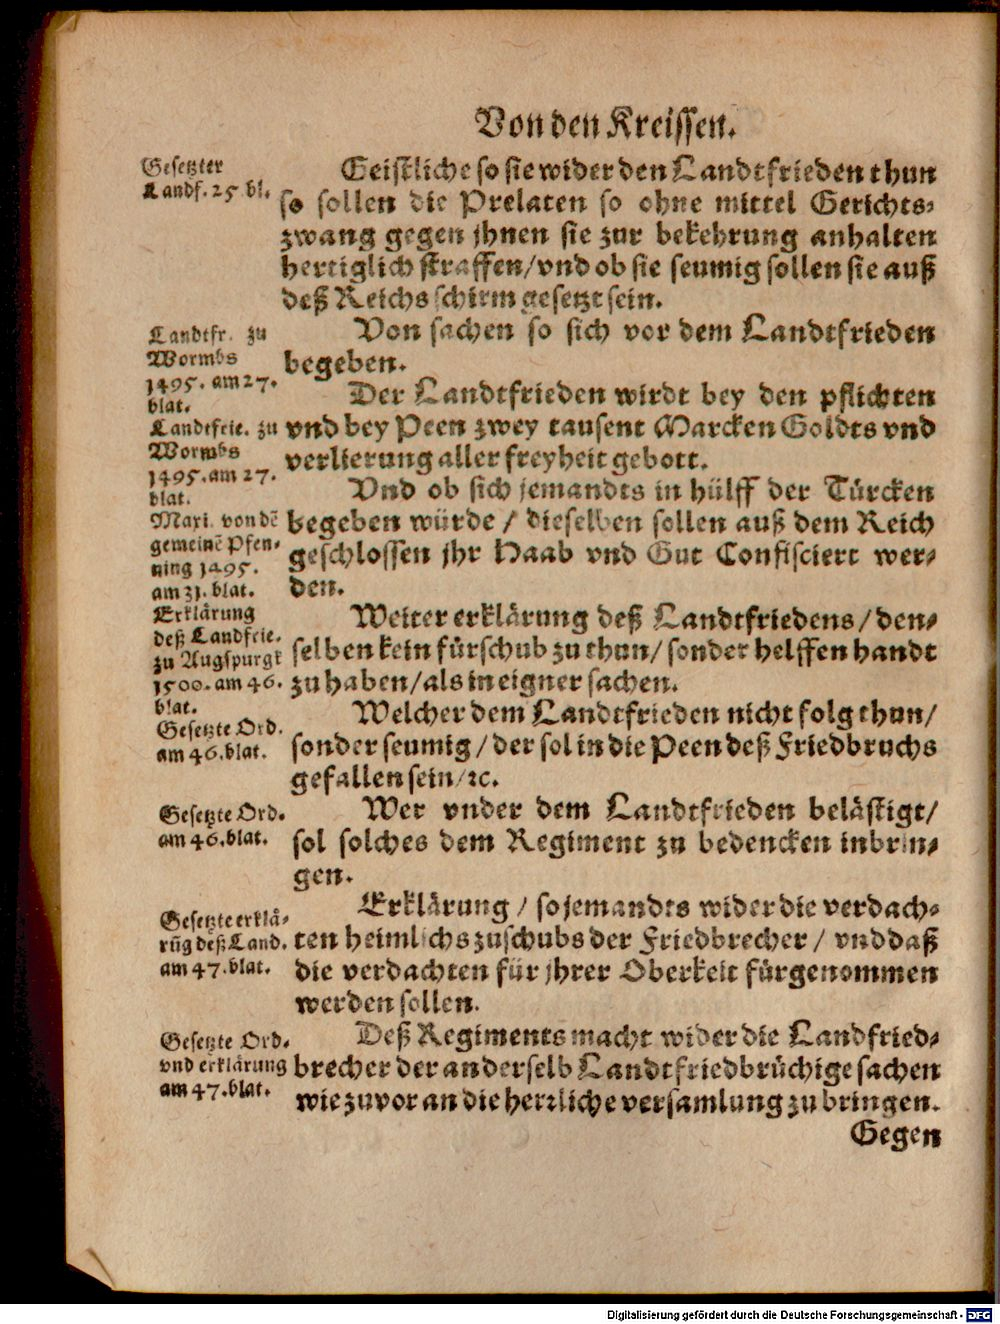 Von den Kreissen.
Gesetzter
Landf. 25 bl.
Geistliche so sie wider den Landtfrieden thun
so sollen die Prelaten so ohne mittel Gerichts-
zwang gegen jhnen sie zur bekehrung anhalten
hertiglich straffen/ vnd ob sie seumig sollen sie auß
deß Reichs schirm gesetzt sein.
Landtfr. zu
Wormbs
1495. am 27.
blat.
Von sachen so sich vor dem Landtfrieden
begeben.
Landtfrie. zu
Wormbs
1495. am 27.
blat.
Der Landtfrieden wirdt bey den pflichten
vnd bey Peen zwey tausent Marcken Goldts vnd
verlierung aller freyheit gebott.
Maxi. von dē
gemeinē Pfen-
ning 1495.
am 31. blat.
Vnd ob sich jemandts in hülff der Türcken
begeben würde / dieselben sollen auß dem Reich
geschlossen jhr Haab vnd Gut Confisciert wer-
den.
Erklärung
deß Landfrie.
zu Augspurgk
1500. am 46.
blat.
Weiter erklärung deß Landtfriedens / den-
selben kein fürschub zu thun/ sonder helffen handt
zu haben/ als in eigner sachen.
Gesetzte Ord.
am 46. blat.
Welcher dem Landtfrieden nicht folg thun/
sonder seumig / der sol in die Peen deß Friedbruchs
gefallen sein/ ꝛc.
Gesetzte Ord.
am 46. blat.
Wer vnder dem Landtfrieden belästigt/
sol solches dem Regiment zu bedencken inbrin-
gen.
Gesetzte erklä-
rūg deß Land.
am 47. blat.
Erklärung / so jemandts wider die verdach-
ten heimlichs zuschubs der Friedbrecher / vnd daß
die verdachten für jhrer Oberkeit fürgenommen
werden sollen.
Gesetzte Ord.
vnd erklärung
am 47. blat.
Deß Regiments macht wider die Landfried-
brecher der anderselb Landtfriedbrüchige sachen
wie zuvor an die herrliche versamlung zu bringen.
Gegen
Digitalisierung gefördert durch die Deutsche Forschungsgemeinschaft - DFG